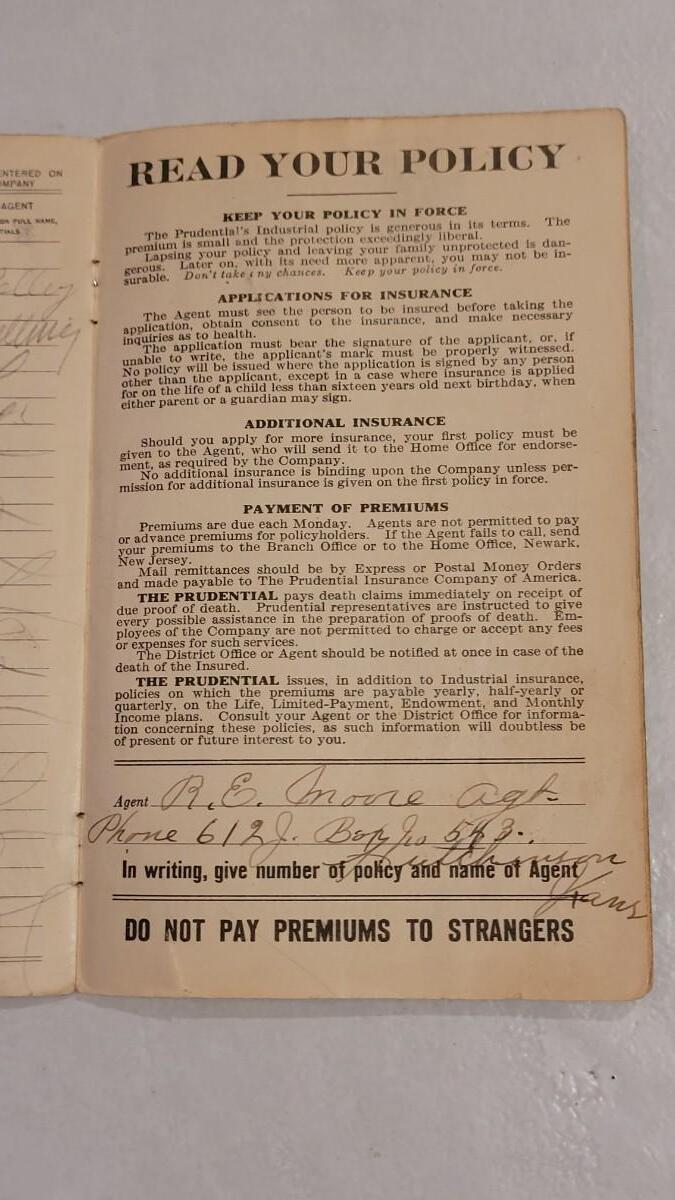 ENTERED ON
COMPANY
AGENT
FULL NAME,
READ YOUR POLICY
KEEP YOUR POLICY IN FORCE
The Prudential's Industrial policy is generous in its terms. The
premium is small and the protection exceedingly liberal.
Lapsing your policy and leaving your family unprotected is dan-
gerous. Later on, with its need more apparent, you may not be in-
surable. Don't take any chances. Keep your policy in force.
APPLICATIONS FOR INSURANCE
The Agent must see the person to be insured before taking the
application, obtain consent to the insurance, and make necessary
inquiries as to health.
The application must bear the signature of the applicant, or, if
unable to write, the applicant's mark must be properly witnessed.
No policy will be issued where the application is signed by any person
other than the applicant, except in a case where insurance is applied
for on the life of a child less than sixteen years old next birthday, when
either parent or a guardian may sign.
ADDITIONAL INSURANCE
Should you apply for more insurance, your first policy must be
given to the Agent, who will send it to the Home Office for endorse-
ment, as required by the Company.
No additional insurance is binding upon the Company unless per-
mission for additional insurance is given on the first policy in force.
PAYMENT OF PREMIUMS
Premiums are due each Monday. Agents are not permitted to pay
or advance premiums for policyholders. If the Agent fails to call, send
your premiums to the Branch Office or to the Home Office, Newark,
New Jersey.
Mail remittances should be by Express or Postal Money Orders
and made payable to The Prudential Insurance Company of America.
THE PRUDENTIAL pays death claims immediately on receipt of
due proof of death. Prudential representatives are instructed to give
every possible assistance in the preparation of proofs of death. Em-
ployees of the Company are not permitted to charge or accept any fees
or expenses for such services.
The District Office or Agent should be notified at once in case of the
death of the Insured.
THE PRUDENTIAL issues, in addition to Industrial insurance,
policies on which the premiums are payable yearly, half-yearly or
quarterly, on the Life, Limited-Payment, Endowment, and Monthly
Income plans. Consult your Agent or the District Office for informa-
tion concerning these policies, as such information will doubtless be
of present or future interest to you.
Agent R. E. Moore Agt-
Phone 612 J. Box No 543.
Hutchinson
In writing, give number of policy and name of Agent
Kans
DO NOT PAY PREMIUMS TO STRANGERS